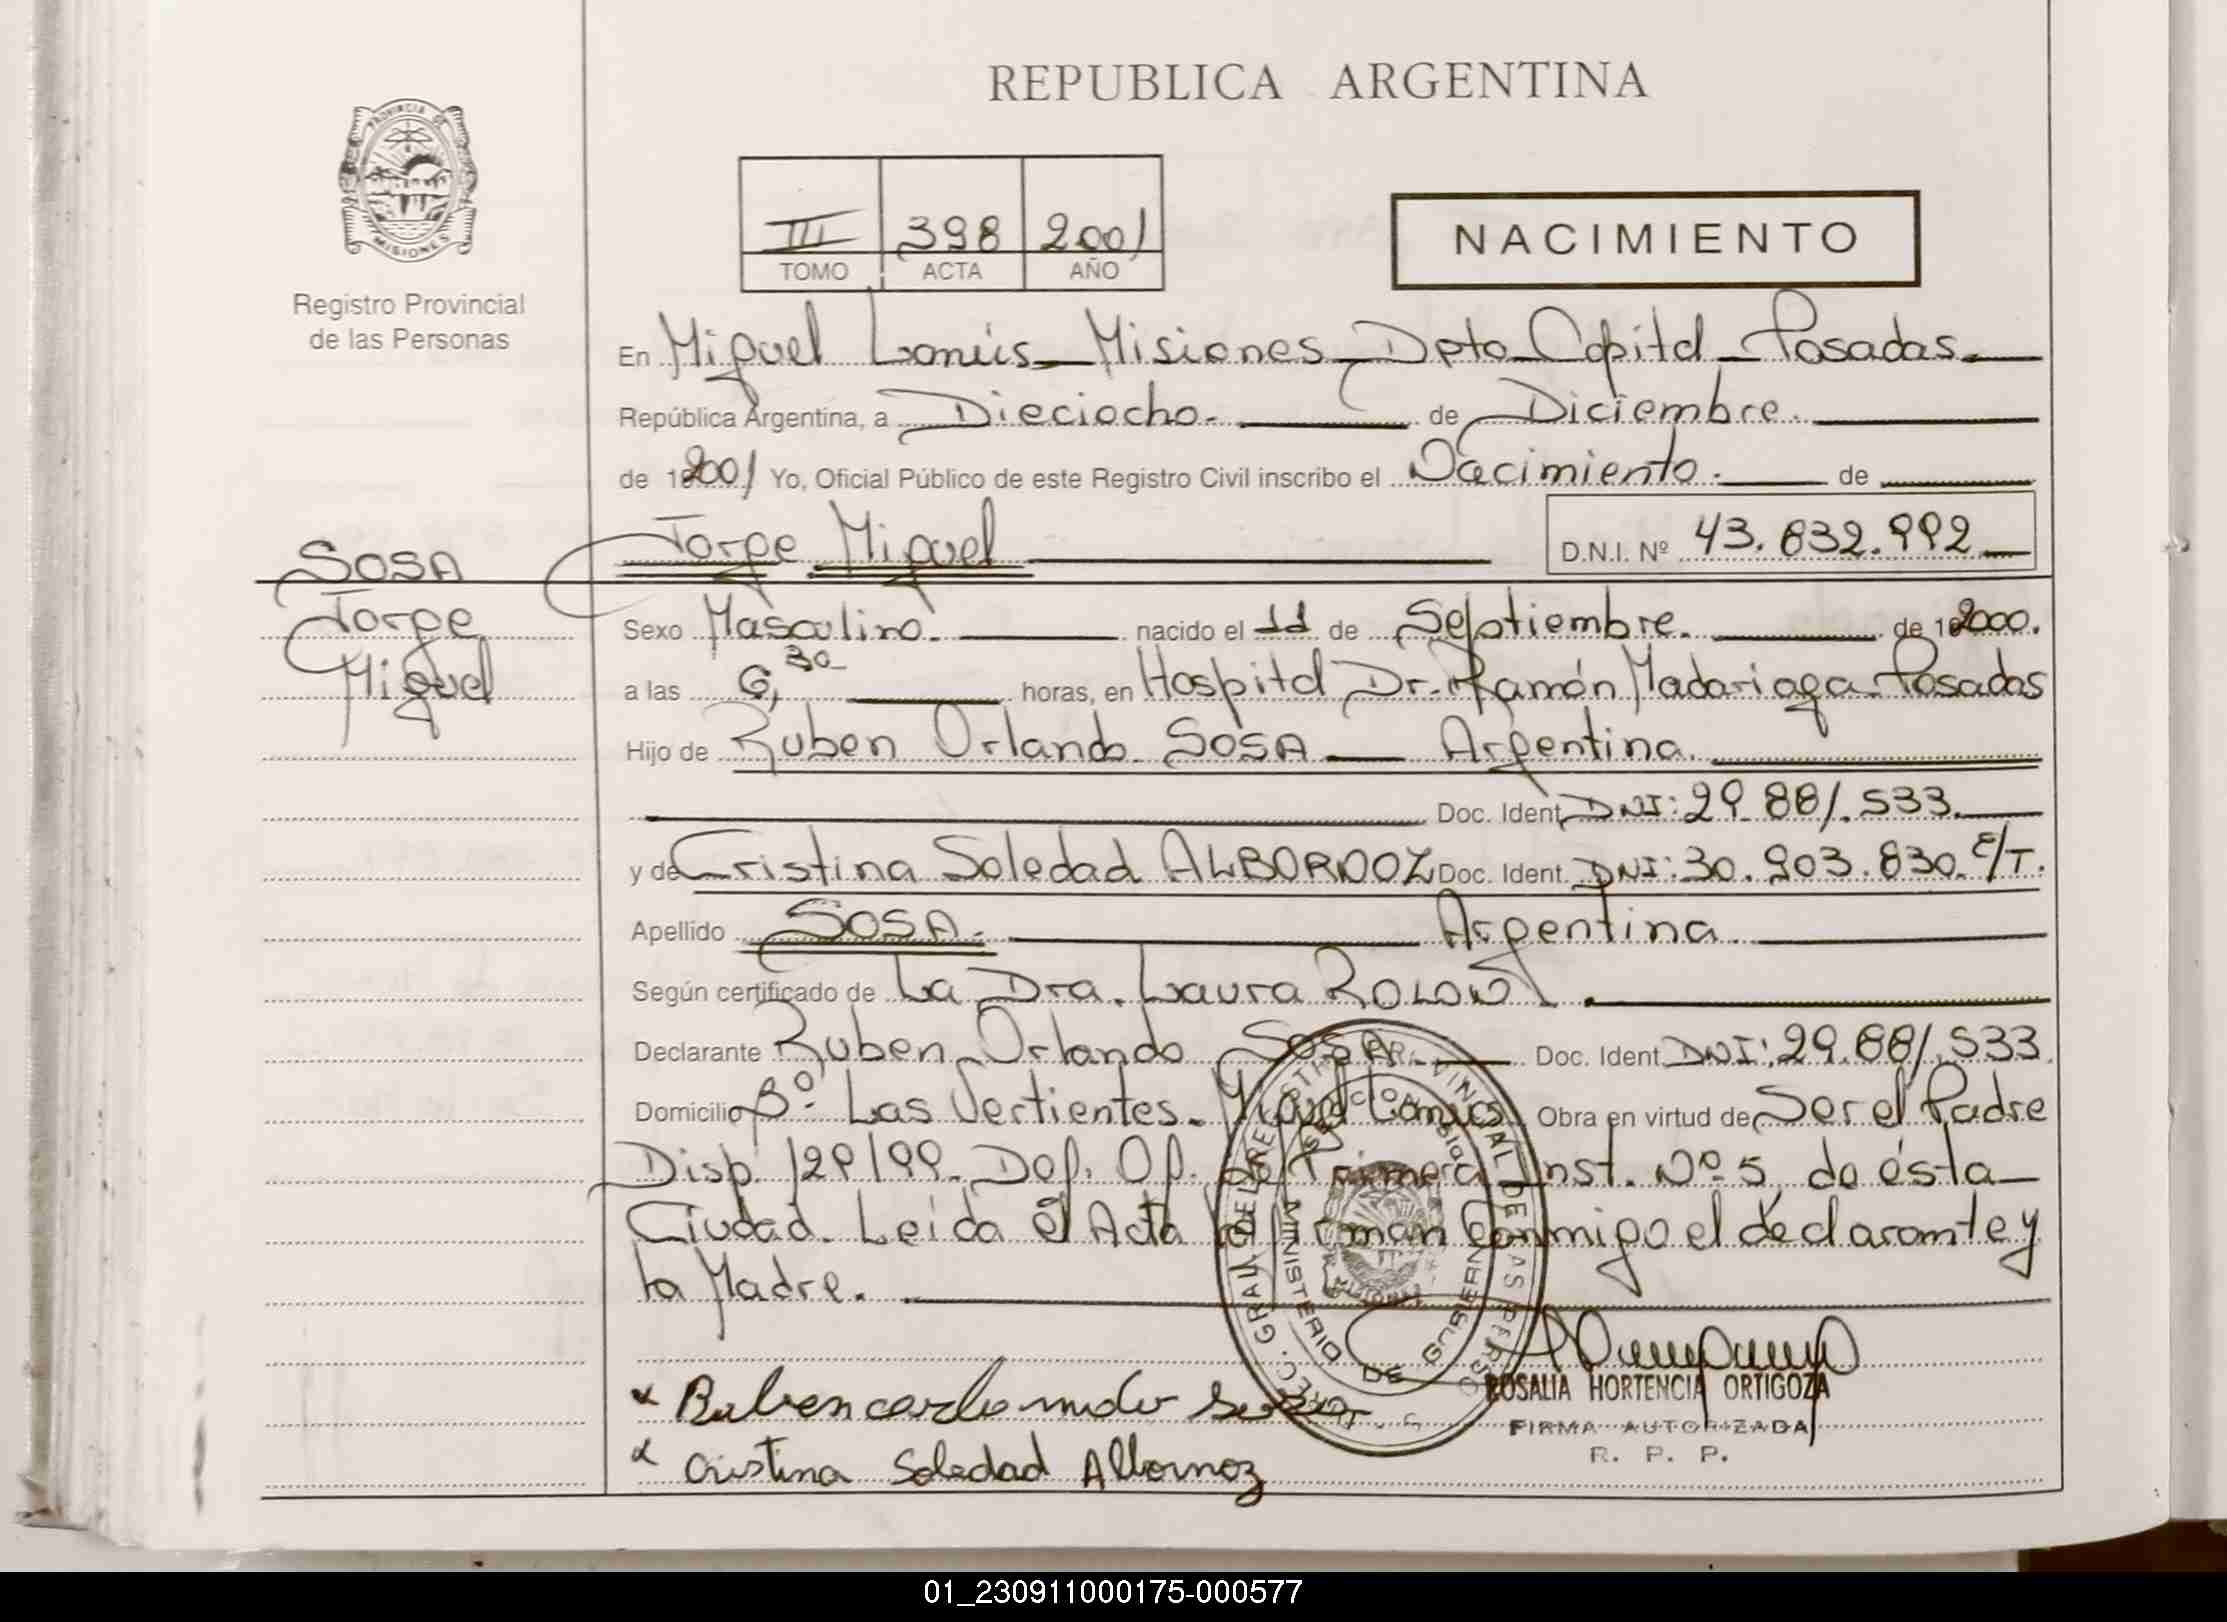 REPUBLICA ARGENTINA
PROVINCIA DE
MISIONES
Registro Provincial
de las Personas
III 398 2001
TOMO ACTA AÑO
NACIMIENTO
En Miguel Lanús - Misiones - Dpto Capital - Posadas.
República Argentina, a Dieciocho. de Diciembre.
de 2001 Yo, Oficial Público de este Registro Civil inscribo el Nacimiento. de
Jorge Miguel D.N.I. Nº 43.832.992
SOSA
Jorge
Miguel
Sexo Masculino. nacido el 11 de Septiembre. de 2000.
a las 6,30 horas, en Hospital Dr. Ramón Madariaga - Posadas
Hijo de Ruben Orlando SOSA Argentina.
Doc. Ident. DNI: 29.881.533.
y de Cristina Soledad ALBORNOZ Doc. Ident. DNI: 30.903.830. E/T.
Apellido SOSA. Argentina
Según certificado de La Dra. Laura ROLON.
Declarante Ruben Orlando SOSA. Doc. Ident. DNI: 29.881.533
Domicilio Bº. Las Vertientes. Miguel Lanús Obra en virtud de Ser el Padre
Disp. 129/99. Def. Of. de Primera Inst. Nº 5, de ésta
Ciudad. Leida el Acta la firman Conmigo el declarante y
la Madre.
DIREC. GRAL. DEL REGISTRO PROVINCIAL DE LAS PERSONAS
MINISTERIO DE GOBIERNO
ROSALIA HORTENCIA ORTIGOZA
FIRMA AUTORIZADA
R. P. P.
Cristina Soledad Albornoz
01_230911000175-000577